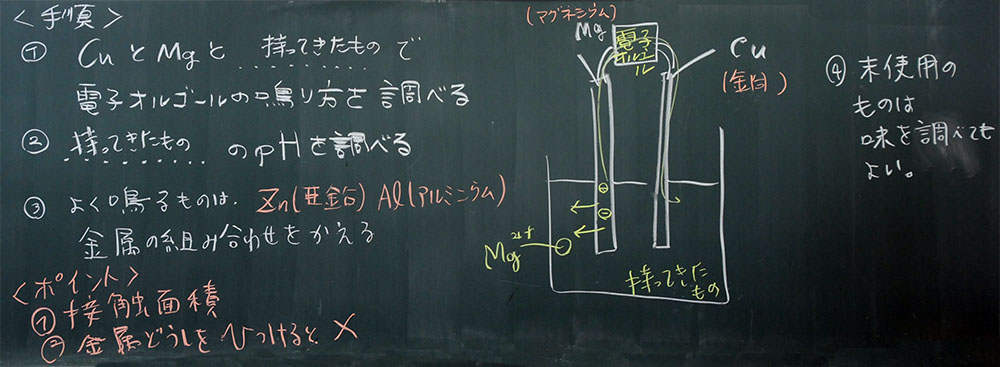 <手順>
① CuとMgと 持ってきたもの で
電子オルゴールの鳴り方を調べる
② 持ってきたもの のpHを調べる
③ よく鳴るものは、Zn(亜鉛) Al(アルミニウム)
金属の組み合わせをかえる
<ポイント>
① 接触面積
② 金属どうしを ひっつけると ×
(マグネシウム)
Mg
電子
オルゴー
ル
Cu
(銅)
⊖
⊖
Mg2+
持ってきた
もの
④ 未使用の
ものは
味を調べても
よい。